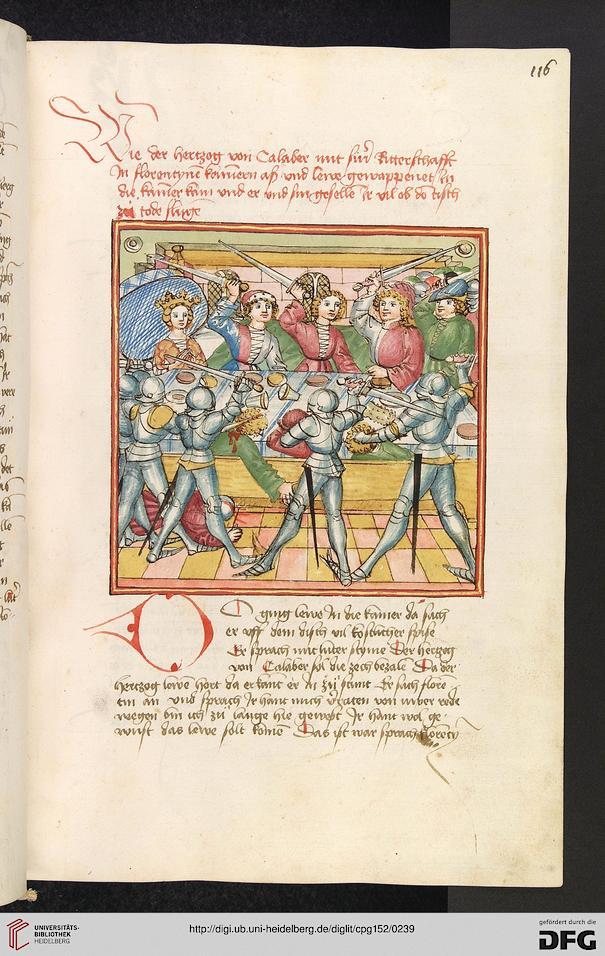 116
Wie der hertzog von Calaber mit siner Ritterschafft
In florentynē kamern aß und lewe gewappenet In
die kamer kam und er und sin geselle Ir vil ob dē tisch
zü tode slüge
DO ging lewe In die kamer da sach
er uff dem disch vil kostlicher spise
Er sprach mit luter styme Der hertzog
von Calaber sol die zech bezalē Da der
hertzog lewen hort da erkant er In zü stunt Er sach florē
tin an und sprach Ir hant mich v͛raten von uwer rede
wegen bin ich zü lange hie gewest Ir hant wol ge
wust das lewe solt komē Das ist war sprach florēty
UNIVERSITÄTS-
BIBLIOTHEK
HEIDELBERG
http://digi.ub.uni-heidelberg.de/diglit/cpg152/0239
gefördert durch die
DFG